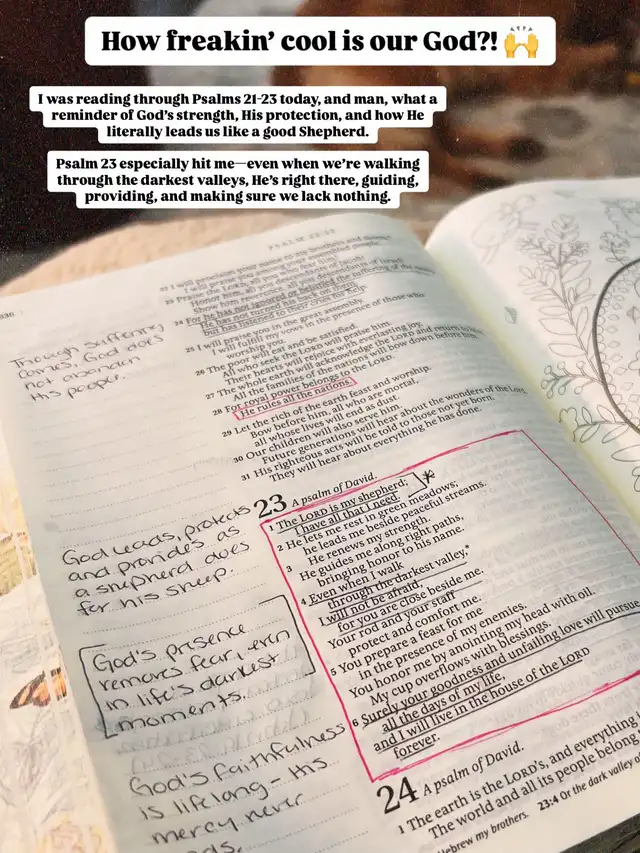 How freakin' cool is our God?! 🙌
I was reading through Psalms 21-23 today, and man, what a
reminder of God's strength, His protection, and how He
literally leads us like a good Shepherd.
Psalm 23 especially hit me—even when we're walking
through the darkest valleys, He's right there, guiding,
providing, and making sure we lack nothing.
22 I will proclaim your name to my brothers and sisters.*
I will praise you among your assembled people.
23 Praise the LORD, all you who fear him!
Honor him, all you descendants of Jacob!
Show him reverence, all you descendants of Israel!
24 For he has not ignored or belittled the suffering of the needy.
He has not turned his back on them,
but has listened to their cries for help.
25 I will praise you in the great assembly.
I will fulfill my vows in the presence of those who
worship you.
26 The poor will eat and be satisfied.
All who seek the LORD will praise him.
Their hearts will rejoice with everlasting joy.
27 The whole earth will acknowledge the LORD and return to him.
All the families of the nations will bow down before him.
28 For royal power belongs to the LORD.
He rules all the nations.
29 Let the rich of the earth feast and worship.
Bow before him, all who are mortal,
all whose lives will end as dust.
30 Our children will also serve him.
Future generations will hear about the wonders of the Lord.
31 His righteous acts will be told to those not yet born.
They will hear about everything he has done.
Through suffering
comes, God does
not abandon
His people.
23 A psalm of David.
1 The LORD is my shepherd;
I have all that I need.
2 He lets me rest in green meadows;
he leads me beside peaceful streams.
3 He renews my strength.
He guides me along right paths,
bringing honor to his name.
4 Even when I walk
through the darkest valley,*
I will not be afraid,
for you are close beside me.
Your rod and your staff
protect and comfort me.
5 You prepare a feast for me
in the presence of my enemies.
You honor me by anointing my head with oil.
My cup overflows with blessings.
6 Surely your goodness and unfailing love will pursue
all the days of my life,
and I will live in the house of the LORD
forever.
God leads, protects
and provides as
a shepherd does
for his sheep.
God's presence
removes fear, even
in life's darkest
moments.
God's faithfulness
is lifelong - His
mercy never
24 A psalm of David.
1 The earth is the LORD's, and everything
The world and all its people belong
Hebrew my brothers. 23:4 Or the dark valley of